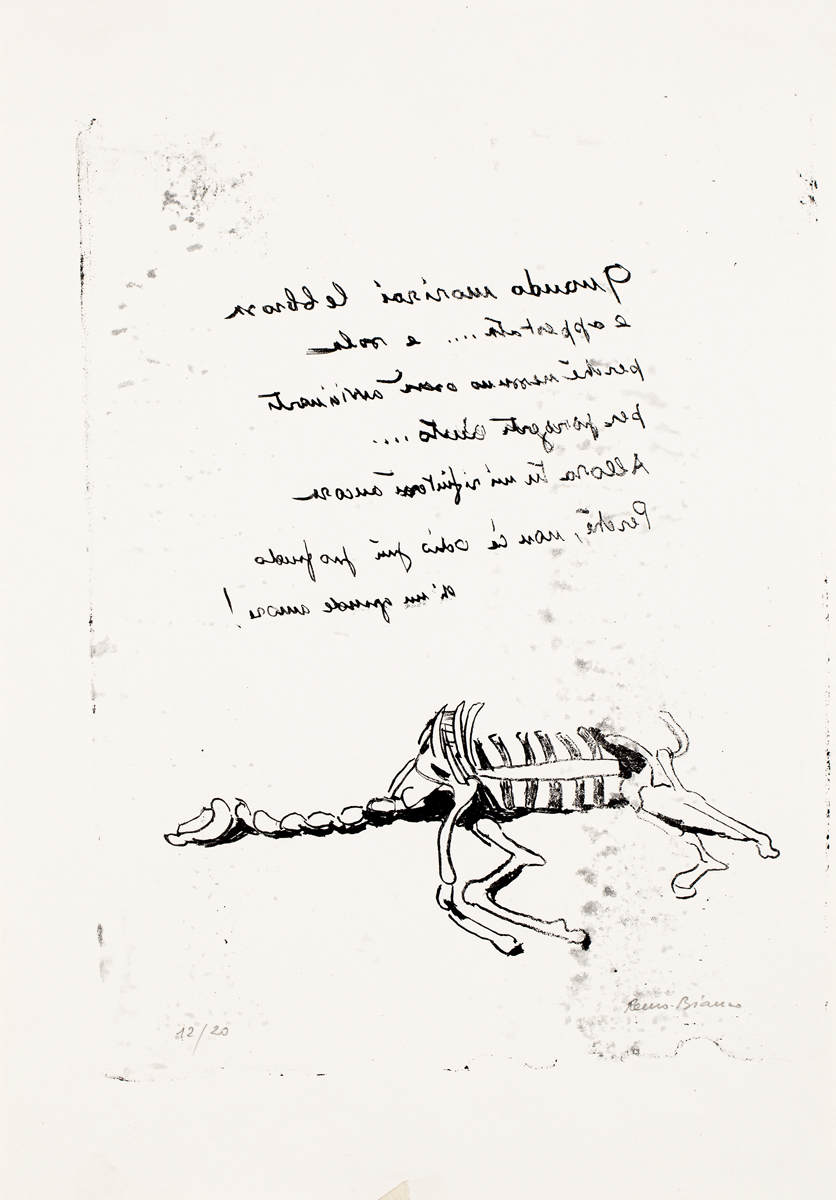 Quando morirai lebbrosa
e appestata.... e sola
perchè nessuno oserà avvicinarti
per porgerti aiuto....
Allora tu mi rifiuterai ancora
Perchè, non c'è odio più profondo
d'un grande amore!
12/20
Remo Bianco